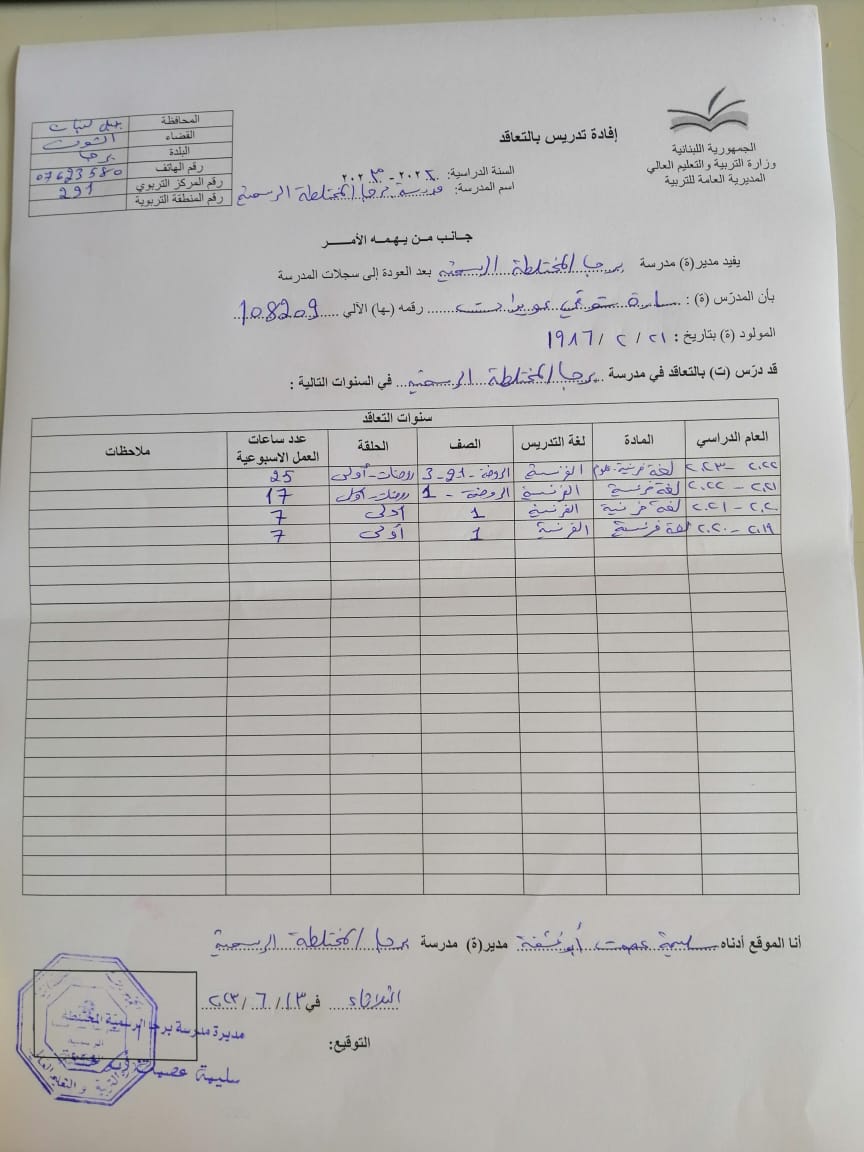 الجمهورية اللبنانية
وزارة التربية والتعليم العالي
المديرية العامة للتربية
إفادة تدريس بالتعاقد
السنة الدراسية: ٢٠٢٢-٢٠٢٣
اسم المدرسة: مدرسة برجا المختلطة الرسمية
المحافظة جبل لبنان
القضاء الشوف
البلدة برجا
رقم الهاتف 07623580
رقم المركز التربوي 291
رقم المنطقة التربوية
جـانـب مـن يـهـمـه الأمـــر
يفيد مدير(ة) مدرسة برجا المختلطة الرسمية بعد العودة إلى سجلات المدرسة
بأن المدرّس (ة) : سارة شوقي رقمه (ـها) الآلي 108209
المولود (ة) بتاريخ : ٢١ / ٢ / ١٩٨٦
قد درّس (ت) بالتعاقد في مدرسة برجا المختلطة الرسمية في السنوات التالية :
سنوات التعاقد
العام الدراسي المادة لغة التدريس الصف الحلقة عدد ساعات العمل الاسبوعية ملاحظات
٢٠٢٢ - ٢٠٢٣ لغة فرنسية علوم الفرنسية الروضة - 3 روضات - أولى 25
٢٠٢١ - ٢٠٢٢ لغة فرنسية الفرنسية الروضة - 1 روضات - أولى 17
٢٠٢٠ - ٢٠٢١ لغة فرنسية الفرنسية 1 أولى 7
٢٠١٩ - ٢٠٢٠ لغة فرنسية الفرنسية 1 أولى 7
أنا الموقع أدناه سليمة عصمت أبو شقة مدير(ة) مدرسة برجا المختلطة الرسمية
الثلاثاء في ١٣ / ٦ / ٢٠٢٣
التوقيع:
مديرة مدرسة برجا الرسمية المختلطة
سليمة عصمت